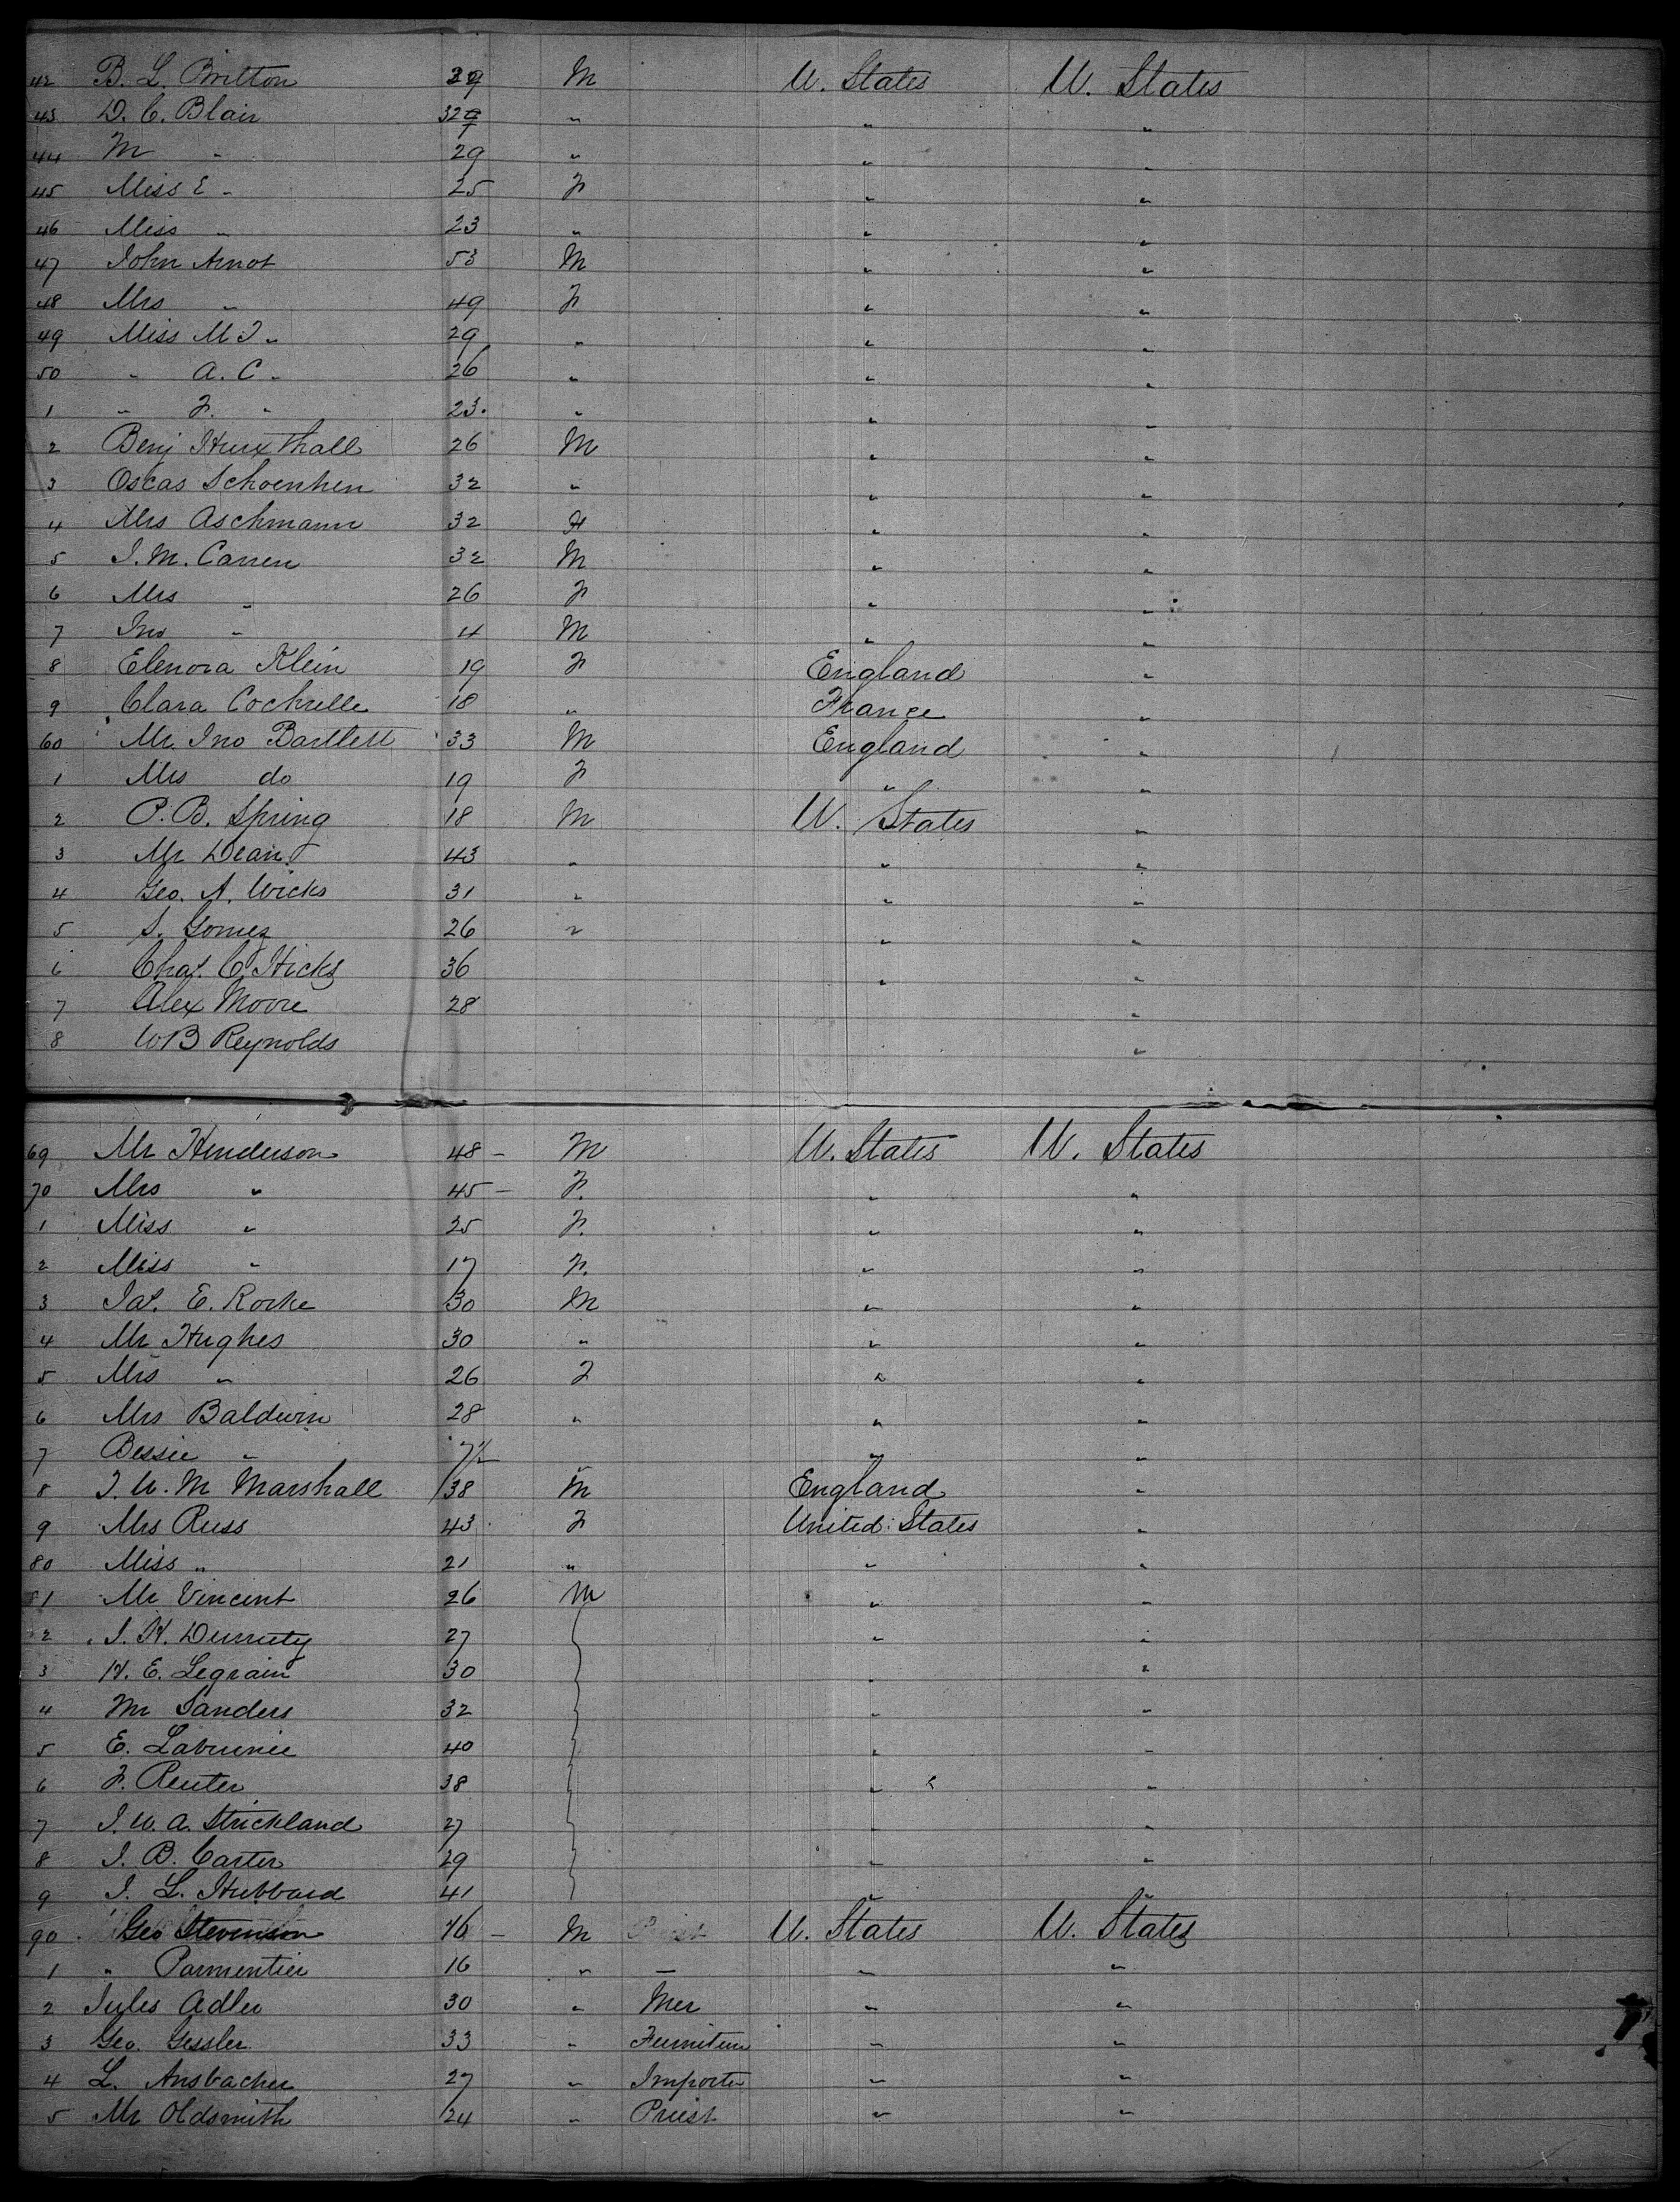 42 B. L. Britton 29 M U. States U. States
43 D. C. Blair 32 " " "
44 M " 29 " " "
45 Miss E " 25 F " "
46 Miss " 23 " " "
47 John Arnot 53 M " "
48 Mrs " 49 F " "
49 Miss M J " 29 " " "
50 " A. C " 26 " " "
1 " F. " 23. " " "
2 Benj Hurxthall 26 M " "
3 Oscas Schoenhen 32 " " "
4 Mrs Aschmann 32 F " "
5 J. M. Carren 32 M " "
6 Mrs " 26 F " "
7 Jno " 4 M " "
8 Elenora Klein 19 F England "
9 Clara Cochrelle 18 " France "
60 Mr. Jno Bartlett 33 M England "
1 Mrs do 19 F " "
2 P. B. Spring 18 M U. States "
3 Mr Dean 43 " " "
4 Geo. A. Wicks 31 " " "
5 S. Gomez 26 " " "
6 Chas. C. Hicks 36 " "
7 Alex Moore 28 "
8 W B Reynolds "
69 Mr Henderson 48 - M U. States U. States
70 Mrs " 45 - F. " "
1 Miss " 25 F. " "
2 Miss " 17 F. " "
3 Jas. E. Rorke 30 M " "
4 Mr Hughes 30 " " "
5 Mrs " 26 F " "
6 Mrs Baldwin 28 " " "
7 Bessie " 7½ " " "
8 J. W. M Marshall 38 M England "
9 Mrs Russ 43 F United States "
80 Miss " 21 " " "
81 Mr Vincent 26 M " "
2 J. H. Durruty 27 " "
3 H. E. Legrain 30 " "
4 Mr Sanders 32 " "
5 E. Labrunie 40 " "
6 F. Reuter 38 " "
7 J. W. A. Strickland 27 " "
8 J. B. Carter 29 " "
9 J. L. Hubbard 41 " "
90 Geo Stevenson 16 - M U. States U. States
1 " Parmentier 16 " - " "
2 Jules Adler 30 " Mer " "
3 Geo. Gessler 33 " Furniture " "
4 L. Ansbacher 27 " Importer " "
5 Mr Oldsmith 24 " Priest " "